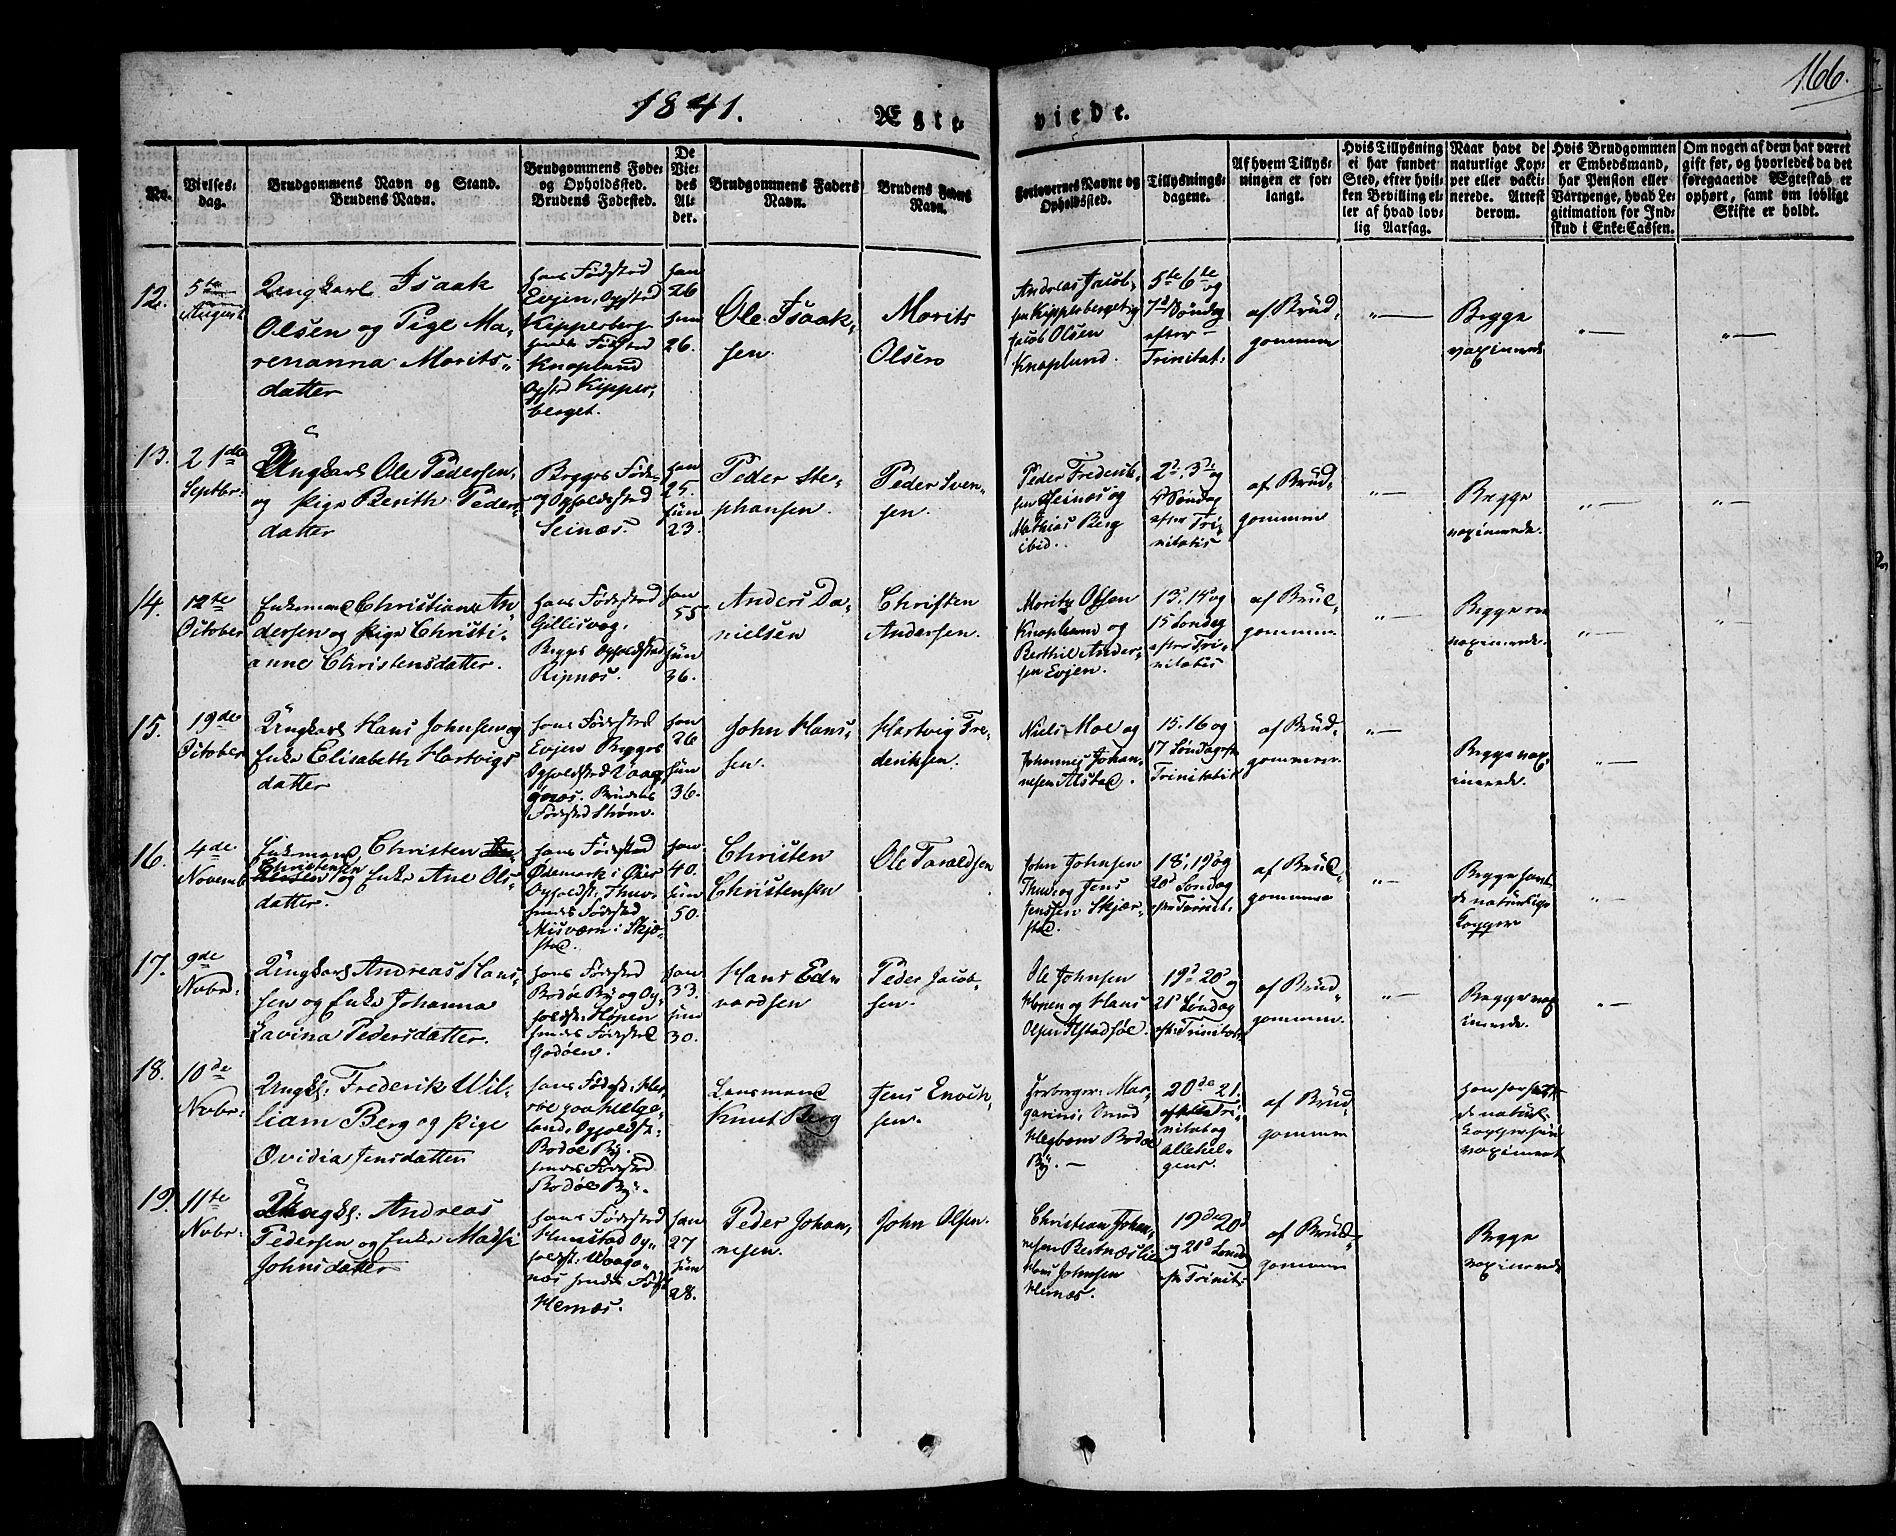 166.
1841.
Ægte viede.
No.
Vielses-
dag.
Brudgommens Navn og Stand.
Brudens Navn.
Brudgommens Føde-
og Opholdssted.
Brudens Fødested.
De
Vie-
des
Al-
der.
Brudgommens Faders
Navn.
Brudens Faders
Navn.
Forlovernes Navne og
Opholdssted.
Tillysnings-
dagene.
Af hvem Tillys-
ningen er for-
langt.
Hvis Tillysning
ei har fundet
Sted, efter hvil-
ken Bevilling el-
ler af hvad lov-
lig Aarsag.
Naar havt de
naturlige Kop-
per eller vakci-
nerede. Attest
derom.
Hvis Brudgommen
er Embedsmand,
har Pension eller
Vartpenge, hvad Le-
gitimation for Ind-
skud i Enke-Cassen.
Om nogen af dem har været
gift før, og hvorledes da det
foregaaende Ægteskab er
ophørt, samt om lovligt
Skifte er holdt.
12.
5te
August
Ungkarl Isaak
Olsen og Pige Ma-
renanna Morits-
datter
hans Fødsted
Evjen, Opsted
Kipperberg
hendes Fødsted
Knaplund
Opsted Kipper-
berget.
han
26
hun
26.
Ole Isaak-
sen.
Morits
Olsen
Andreas Jacob-
sen Kipperberget og
Jacob Olsen
Knaplund.
5te 6te
og
7d Søndag
efter
Trinitat:
af Brud-
gommen
"—
Begge
vaxinerede
"—
"—
13.
21de
Septbr:
Ungkarl Ole Pedersen
og Pige Berith Peders-
datter
Begges Føde-
og Opholdsted
Seines.
han
25.
hun
23.
Peder Ste-
phansen.
Peder Sven-
sen.
Peder Frederik-
sen Seines og
Mathias Berg
ibid.
2d, 3de og
4d Søndag
efter Tri-
nitatis
af Brud-
gommen
"—
Begge
vaxinerede.
"—
"—
14.
12te
October
Enkemand Christian An-
dersen og Pige Christi-
anne Christensdatter.
hans Fødested
Gillisvog.
Begges Opholdsted
Ripnæs.
han
55
hun
36.
Anders Da-
nielsen
Christen
Andersen.
Moritz Olsen
Knaplund og
Berthil Ander-
sen Evjen.
13d, 14d og
15 Søndag
efter Tri-
nitatis
af Brud-
gommen
"—
Begge
vaxinerede.
"—
"—
15.
19de
October
Ungkarl Hans Johnsen og
Enke Elisabeth Hartvigs
datter
hans Fødested
Evjen Begges
Opholdsted Vaag-
onæs. Brudens
Fødested Strøm.
han
26
hun
36.
John Hans-
sen.
Hartvig Fre-
deriksen.
Niels Moe og
Johannes Johan-
nesen Alstad.
15. 16 og
17 Søndag eft:
Trinitatis
af Brud-
gommen.
"—
Begge vax-
inerede.
"—
16.
4de
Novemb
Enkemand Christen
Christensen
og Enke Ane Ols-
datter.
hans Fødested
Ødemark i
Opholdst: Thuv-
hendes Fødested
Misværn i Skjæ-
stad.
han
40.
hun
50.
Christen
Christensen
Ole Taraldsen
John Johnsen
Thuv, og Jens
Jenssen Skjær-
stad.
18, 19d og
20d Søndag
eft: Trinit:
af Brud-
gommen
"—
Begge havt
de naturlige
Kopper
"—
17.
9de
Nobr:
Ungkarl Andreas Hans-
sen og Enke Johanna
Lavina Pedersdatter.
hans Fødested
Bodøe By og Op-
holdst: Hopen
hendes Fødested
Godøen.
han
33.
hun
30.
Hans Ed-
vardsen
Peder Jacob-
sen.
Ole Johnsen
og Hans
Olsen Alstadsøe.
19d 20d og
21d Søndag
eft: Trinitatis
af Brud-
gommen.
"—
Begge vax-
inerede.
"—
18.
10de
Nobr:
Ungk: Frederik Wil-
liam Berg og Pige
Ovidia Jensdatter
hans Fødest: Her-
øe paa Helge-
land, Opholdst:
Bodøe By.
hendes Fødested
Bodøe By.
Lensmand
Knut Berg
Jens Enoch-
sen.
Borger: Mar-
garini:
Hegbom Bodøe
By. —
20de 21.
efter Tri-
nitat og
Allehel-
gens.
af Brud-
gommen
han har havt
de naturl:
Kopper hun
vaxineret
19.
11te
Nobr:
Ungk: Andreas
Pedersen og Enke Madsi
Johnsdatter
hans Fødested
Hunstad Op-
holdst: Vaago-
næs hendes Fødst
Hernæs.
han
27
hun
28.
Peder Johan-
nesen.
John Olsen.
Christian Johan-
nesen Bertnæslien
Hans Johnsen
Hernæs.
19d 20d
og 21d Søndag
eft: Trinit:
af Brud-
gommen
Begge
vaxinerede